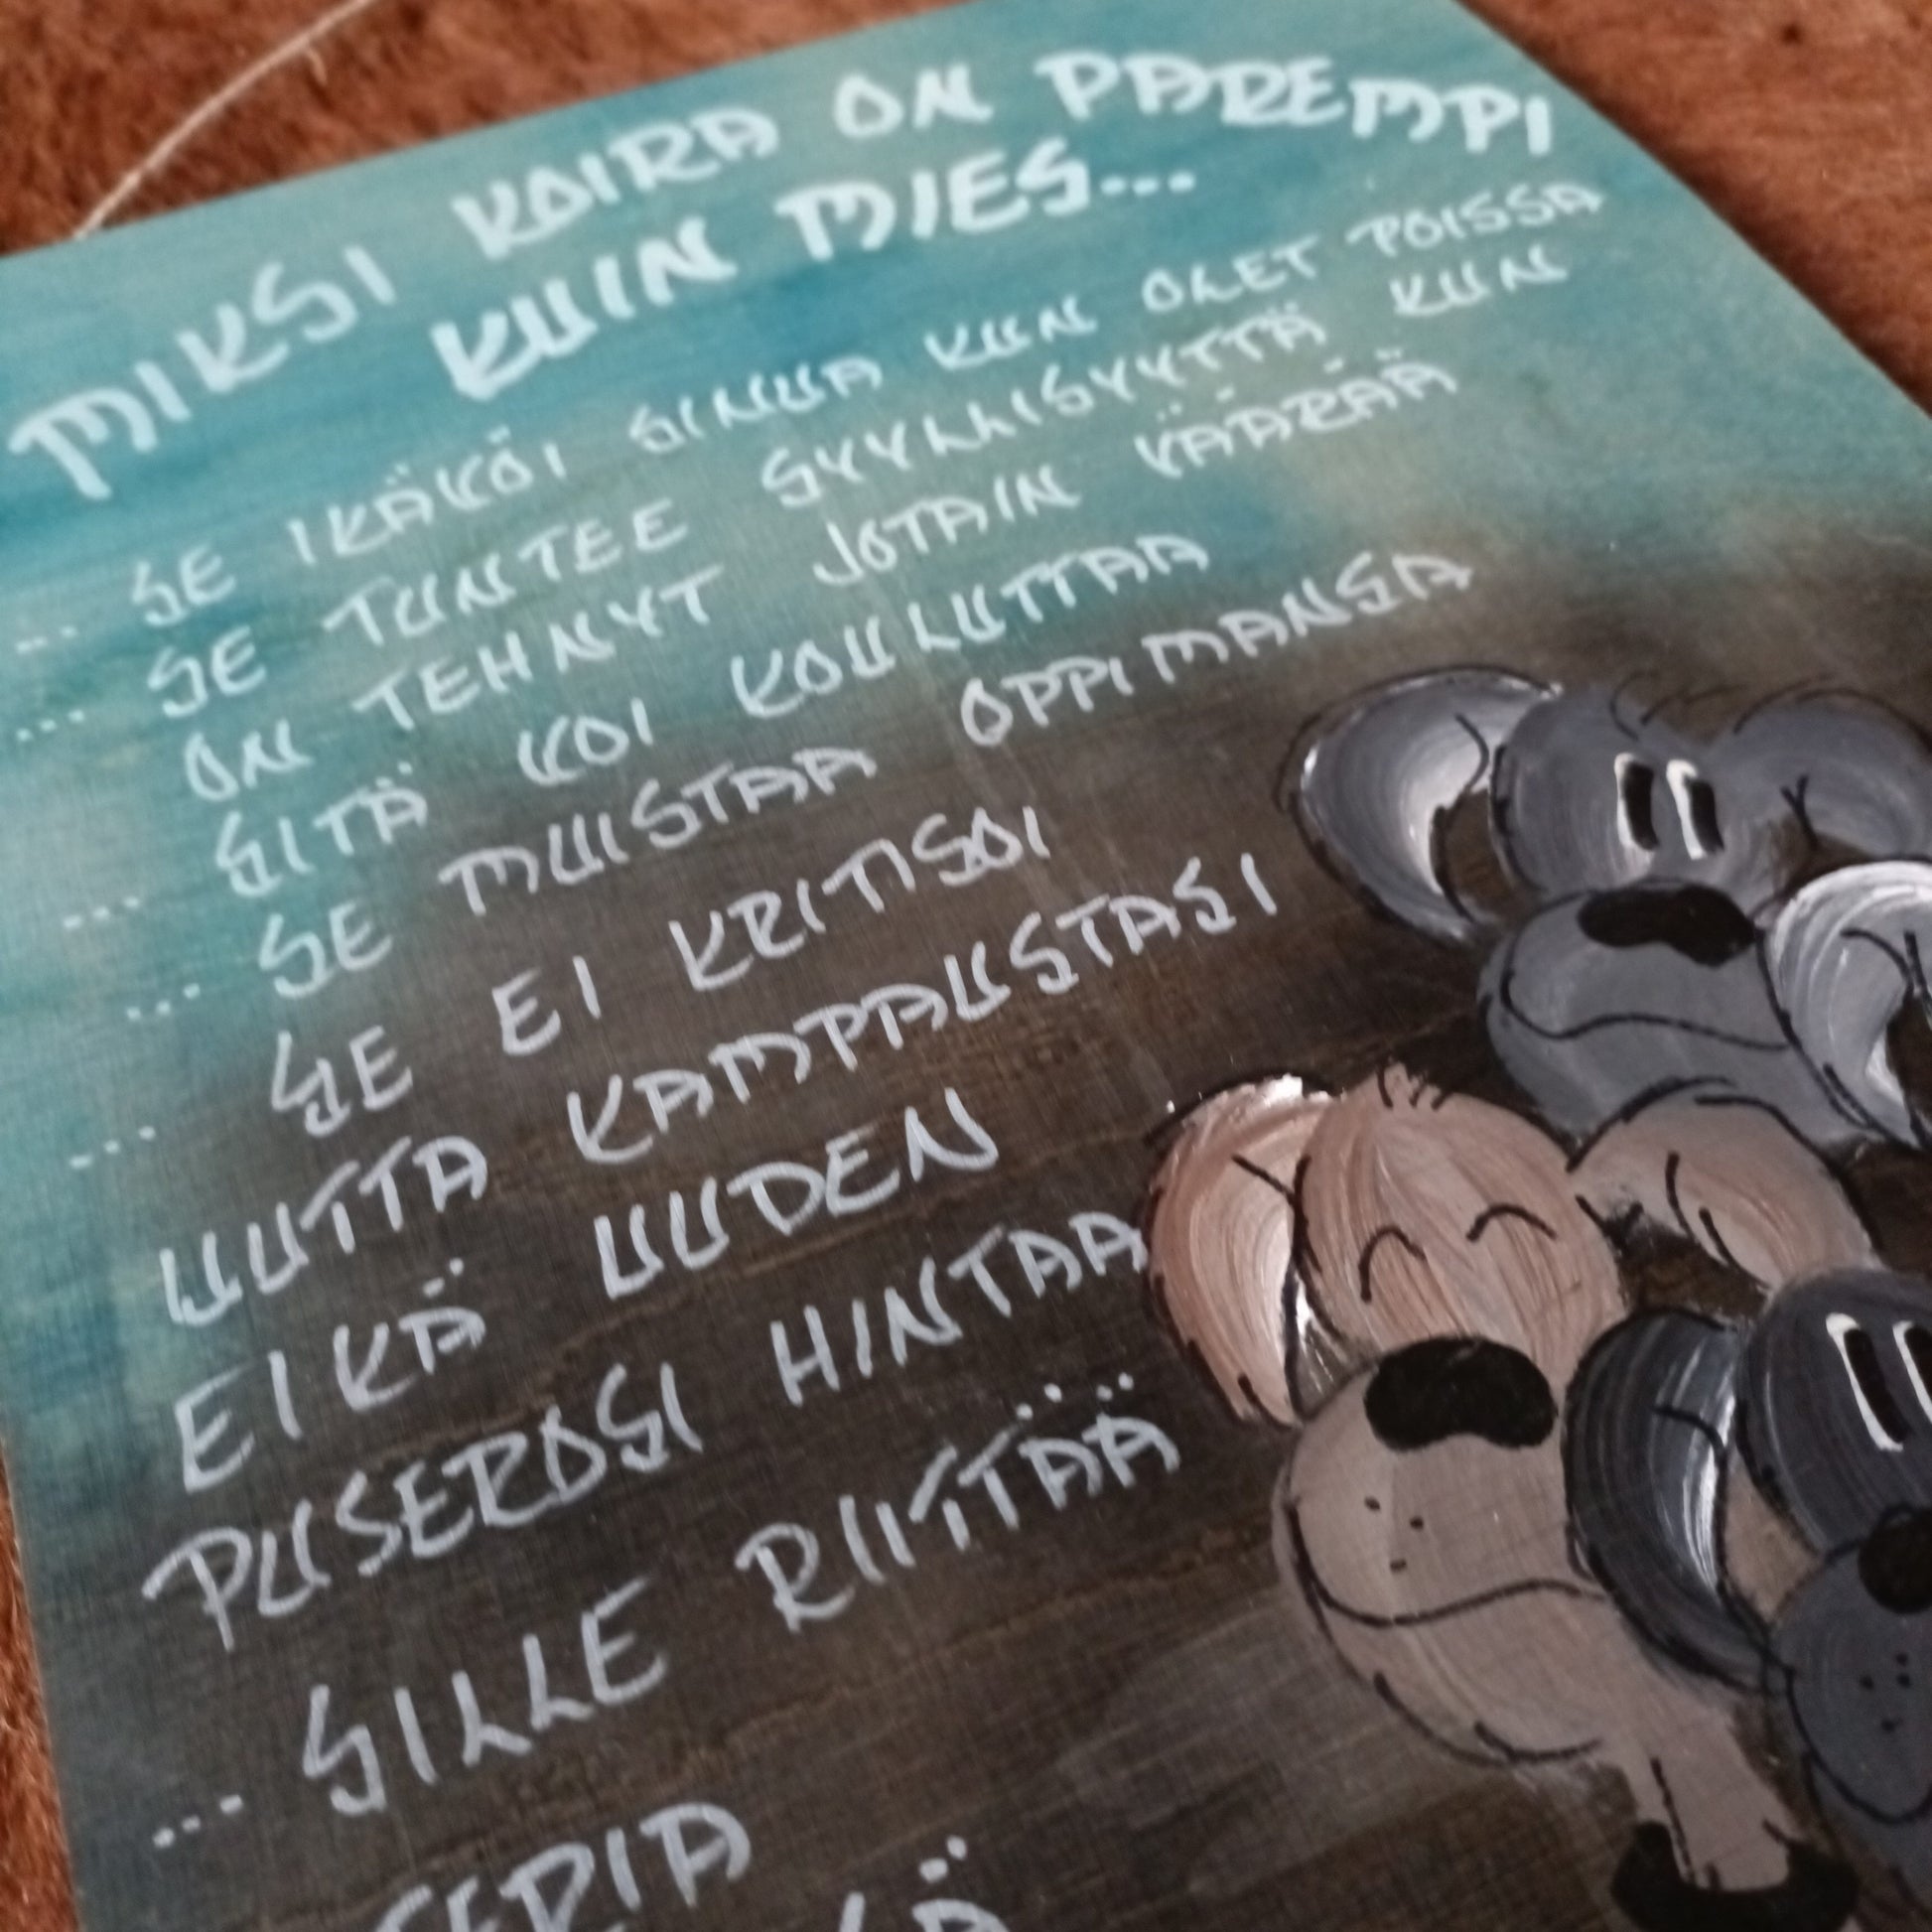 MIKSI KOIRA ON PAREMPI
KUIN MIES...
... SE IKÄKÖI SINUA KUN OLET POISSA
... SE TUNTEE SYYLLISYYTTÄ KUN
ON TEHNYT JOTAIN VÄÄRÄÄ
... SITÄ VOI KOULUTTAA
... SE MUISTAA OPPIMANSA
... SE EI KRITISOI
UUTTA KAMPAUSTASI
EIKÄ UUDEN
PUSEROSI HINTAA
... SILLE RIITTÄÄ